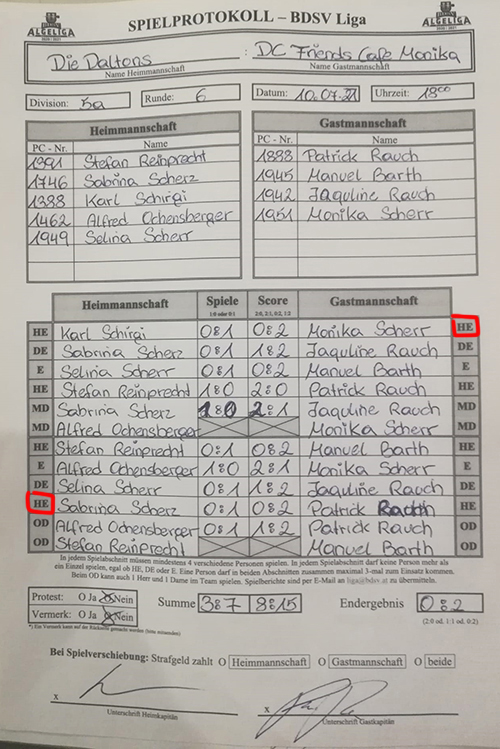 ALGELIGA
SPIELPROTOKOLL – BDSV Liga
ALGELIGA
Die Daltons : DC Friends Cafe Monika
Name Heimmannschaft Name Gastmannschaft
Division: 5a Runde: 6 Datum: 10.07.21 Uhrzeit: 18⁰⁰
Heimmannschaft Gastmannschaft
PC - Nr. Name PC - Nr. Name
1391 Stefan Reinprecht 1888 Patrick Rauch
1746 Sabrina Scherz 1945 Manuel Barth
1388 Karl Schirgi 1942 Jaquline Rauch
1462 Alfred Ochensberger 1951 Monika Scherr
1949 Selina Scherr
Heimmannschaft Spiele Score Gastmannschaft
1:0 oder 0:1 2:0, 2:1, 0:2, 1:2
HE Karl Schirgi 0:1 0:2 Monika Scherr HE
DE Sabrina Scherz 0:1 1:2 Jaquline Rauch DE
E Selina Scherr 0:1 0:2 Manuel Barth E
HE Stefan Reinprecht 1:0 2:0 Patrick Rauch HE
MD Sabrina Scherz 1:0 2:1 Jaquline Rauch MD
MD Alfred Ochensberger Monika Scherr MD
HE Stefan Reinprecht 0:1 0:2 Manuel Barth HE
E Alfred Ochensberger 1:0 2:1 Monika Scherr E
DE Selina Scherr 0:1 1:2 Jaquline Rauch DE
HE Sabrina Scherz 0:1 0:2 Patrick Rauch HE
OD Alfred Ochensberger 0:1 1:2 Patrick Rauch OD
OD Stefan Reinprecht Manuel Barth OD
In jedem Spielabschnitt müssen mindestens 4 verschiedene Personen spielen. In jedem Spielabschnitt darf keine Person mehr als
ein Einzel spielen, egal ob HE, DE oder E. Eine Person darf in beiden Abschnitten zusammen maximal 3-mal zum Einsatz kommen.
Beim OD kann auch 1 Herr und 1 Dame im Team spielen. Spielberichte sind per E-Mail an liga@bdsv.at zu übermitteln.
Protest: O Ja O Nein Summe 3:7 8:15 Endergebnis 0:2
Vermerk: O Ja O Nein (2:0 od. 1:1 od. 0:2)
*) Ein Vermerk kann auf der Rückseite gemacht werden (bitte mitsenden)
Bei Spielverschiebung: Strafgeld zahlt O Heimmannschaft O Gastmannschaft O beide
x x
Unterschrift Heimkapitän Unterschrift Gastkapitän